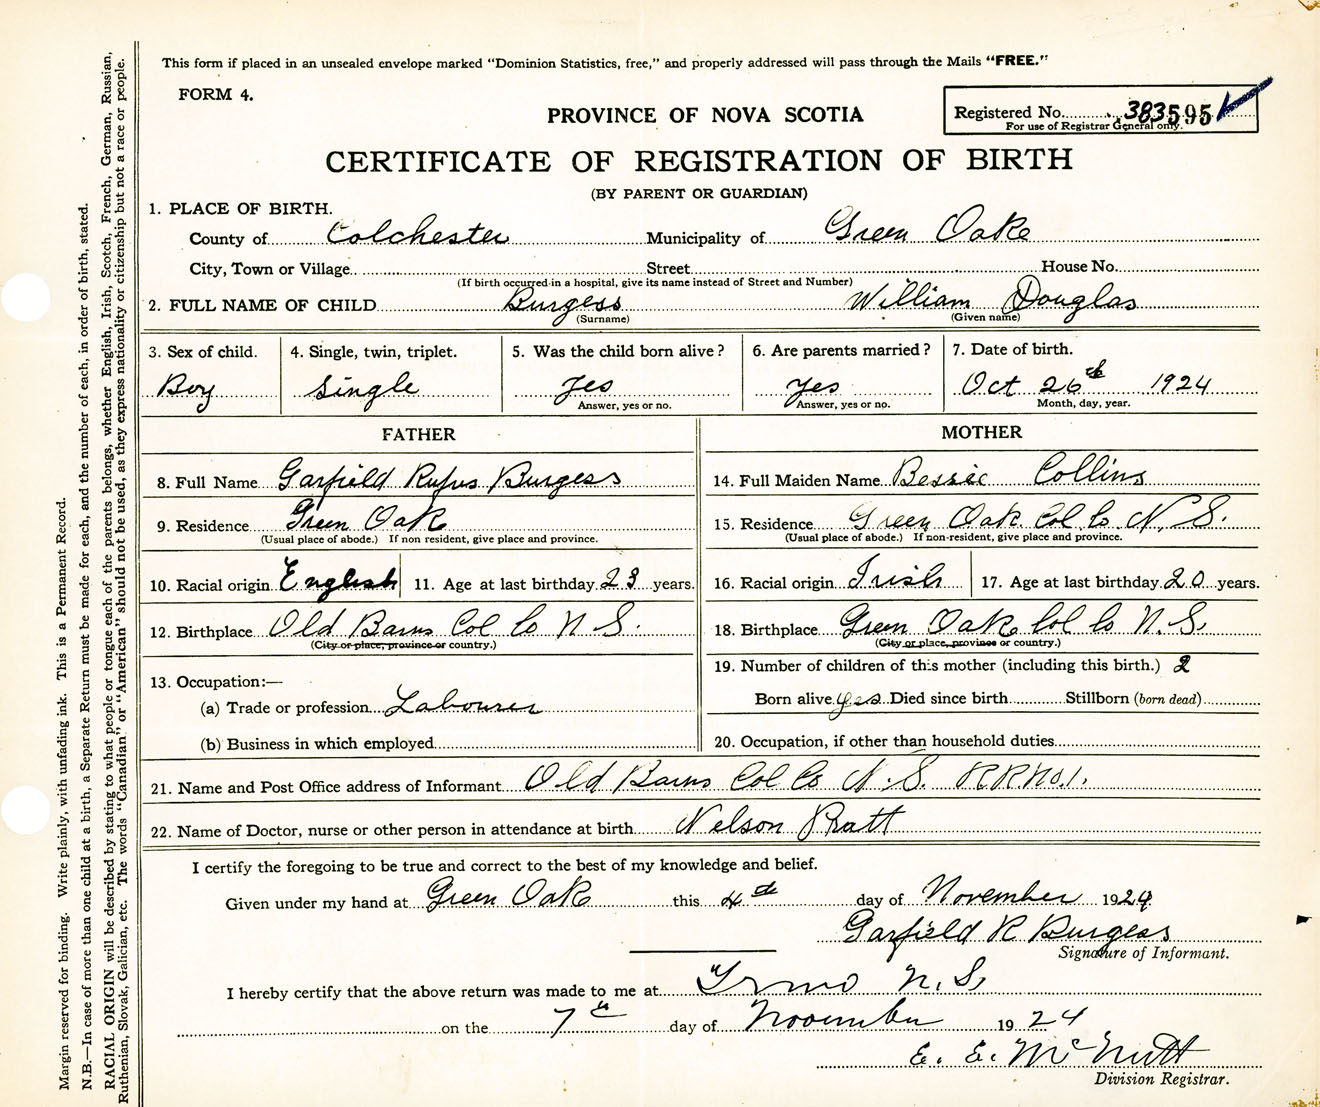 This form if placed in an unsealed envelope marked "Dominion Statistics, free," and properly addressed will pass through the Mails "FREE."
FORM 4.
PROVINCE OF NOVA SCOTIA
Registered No. 383595
For use of Registrar General only.
CERTIFICATE OF REGISTRATION OF BIRTH
(BY PARENT OR GUARDIAN)
1. PLACE OF BIRTH.
County of Colchester Municipality of Green Oake
City, Town or Village Street House No.
(If birth occurred in a hospital, give its name instead of Street and Number)
2. FULL NAME OF CHILD Burgess William Douglas
(Surname) (Given name)
3. Sex of child. 4. Single, twin, triplet. 5. Was the child born alive? 6. Are parents married? 7. Date of birth.
Boy Single Yes Yes Oct 26th 1924
Answer, yes or no. Answer, yes or no. Month, day, year.
FATHER MOTHER
8. Full Name Garfield Rufus Burgess 14. Full Maiden Name Bessie Collins
9. Residence Green Oak 15. Residence Green Oak Col Co N.S.
(Usual place of abode.) If non resident, give place and province. (Usual place of abode.) If non-resident, give place and province.
10. Racial origin English 11. Age at last birthday 23 years. 16. Racial origin Irish 17. Age at last birthday 20 years.
12. Birthplace Old Barns Col Co N S. 18. Birthplace Green Oak Col Co N.S.
(City or place, province or country.) (City or place, province or country.)
19. Number of children of this mother (including this birth.) 2
13. Occupation:—
(a) Trade or profession Labourer Born alive yes Died since birth Stillborn (born dead)
(b) Business in which employed 20. Occupation, if other than household duties
21. Name and Post Office address of Informant Old Barns Col Co N.S. R.R.No.1.
22. Name of Doctor, nurse or other person in attendance at birth Nelson Pratt
I certify the foregoing to be true and correct to the best of my knowledge and belief.
Given under my hand at Green Oak this 4th day of November 1924
Garfield R Burgess
Signature of Informant.
I hereby certify that the above return was made to me at N.S.
on the 7th day of November 1924
E. E. McNutt
Division Registrar.
Margin reserved for binding. Write plainly, with unfading ink. This is a Permanent Record.
N.B.—In case of more than one child at a birth, a Separate Return must be made for each, and the number of each, in order of birth, stated.
RACIAL ORIGIN will be described by stating to what people or tongue each of the parents belongs, whether English, Irish, Scotch, French, German, Russian,
Ruthenian, Slovak, Galician, etc. The words "Canadian" or "American" should not be used, as they express nationality or citizenship but not a race or people.